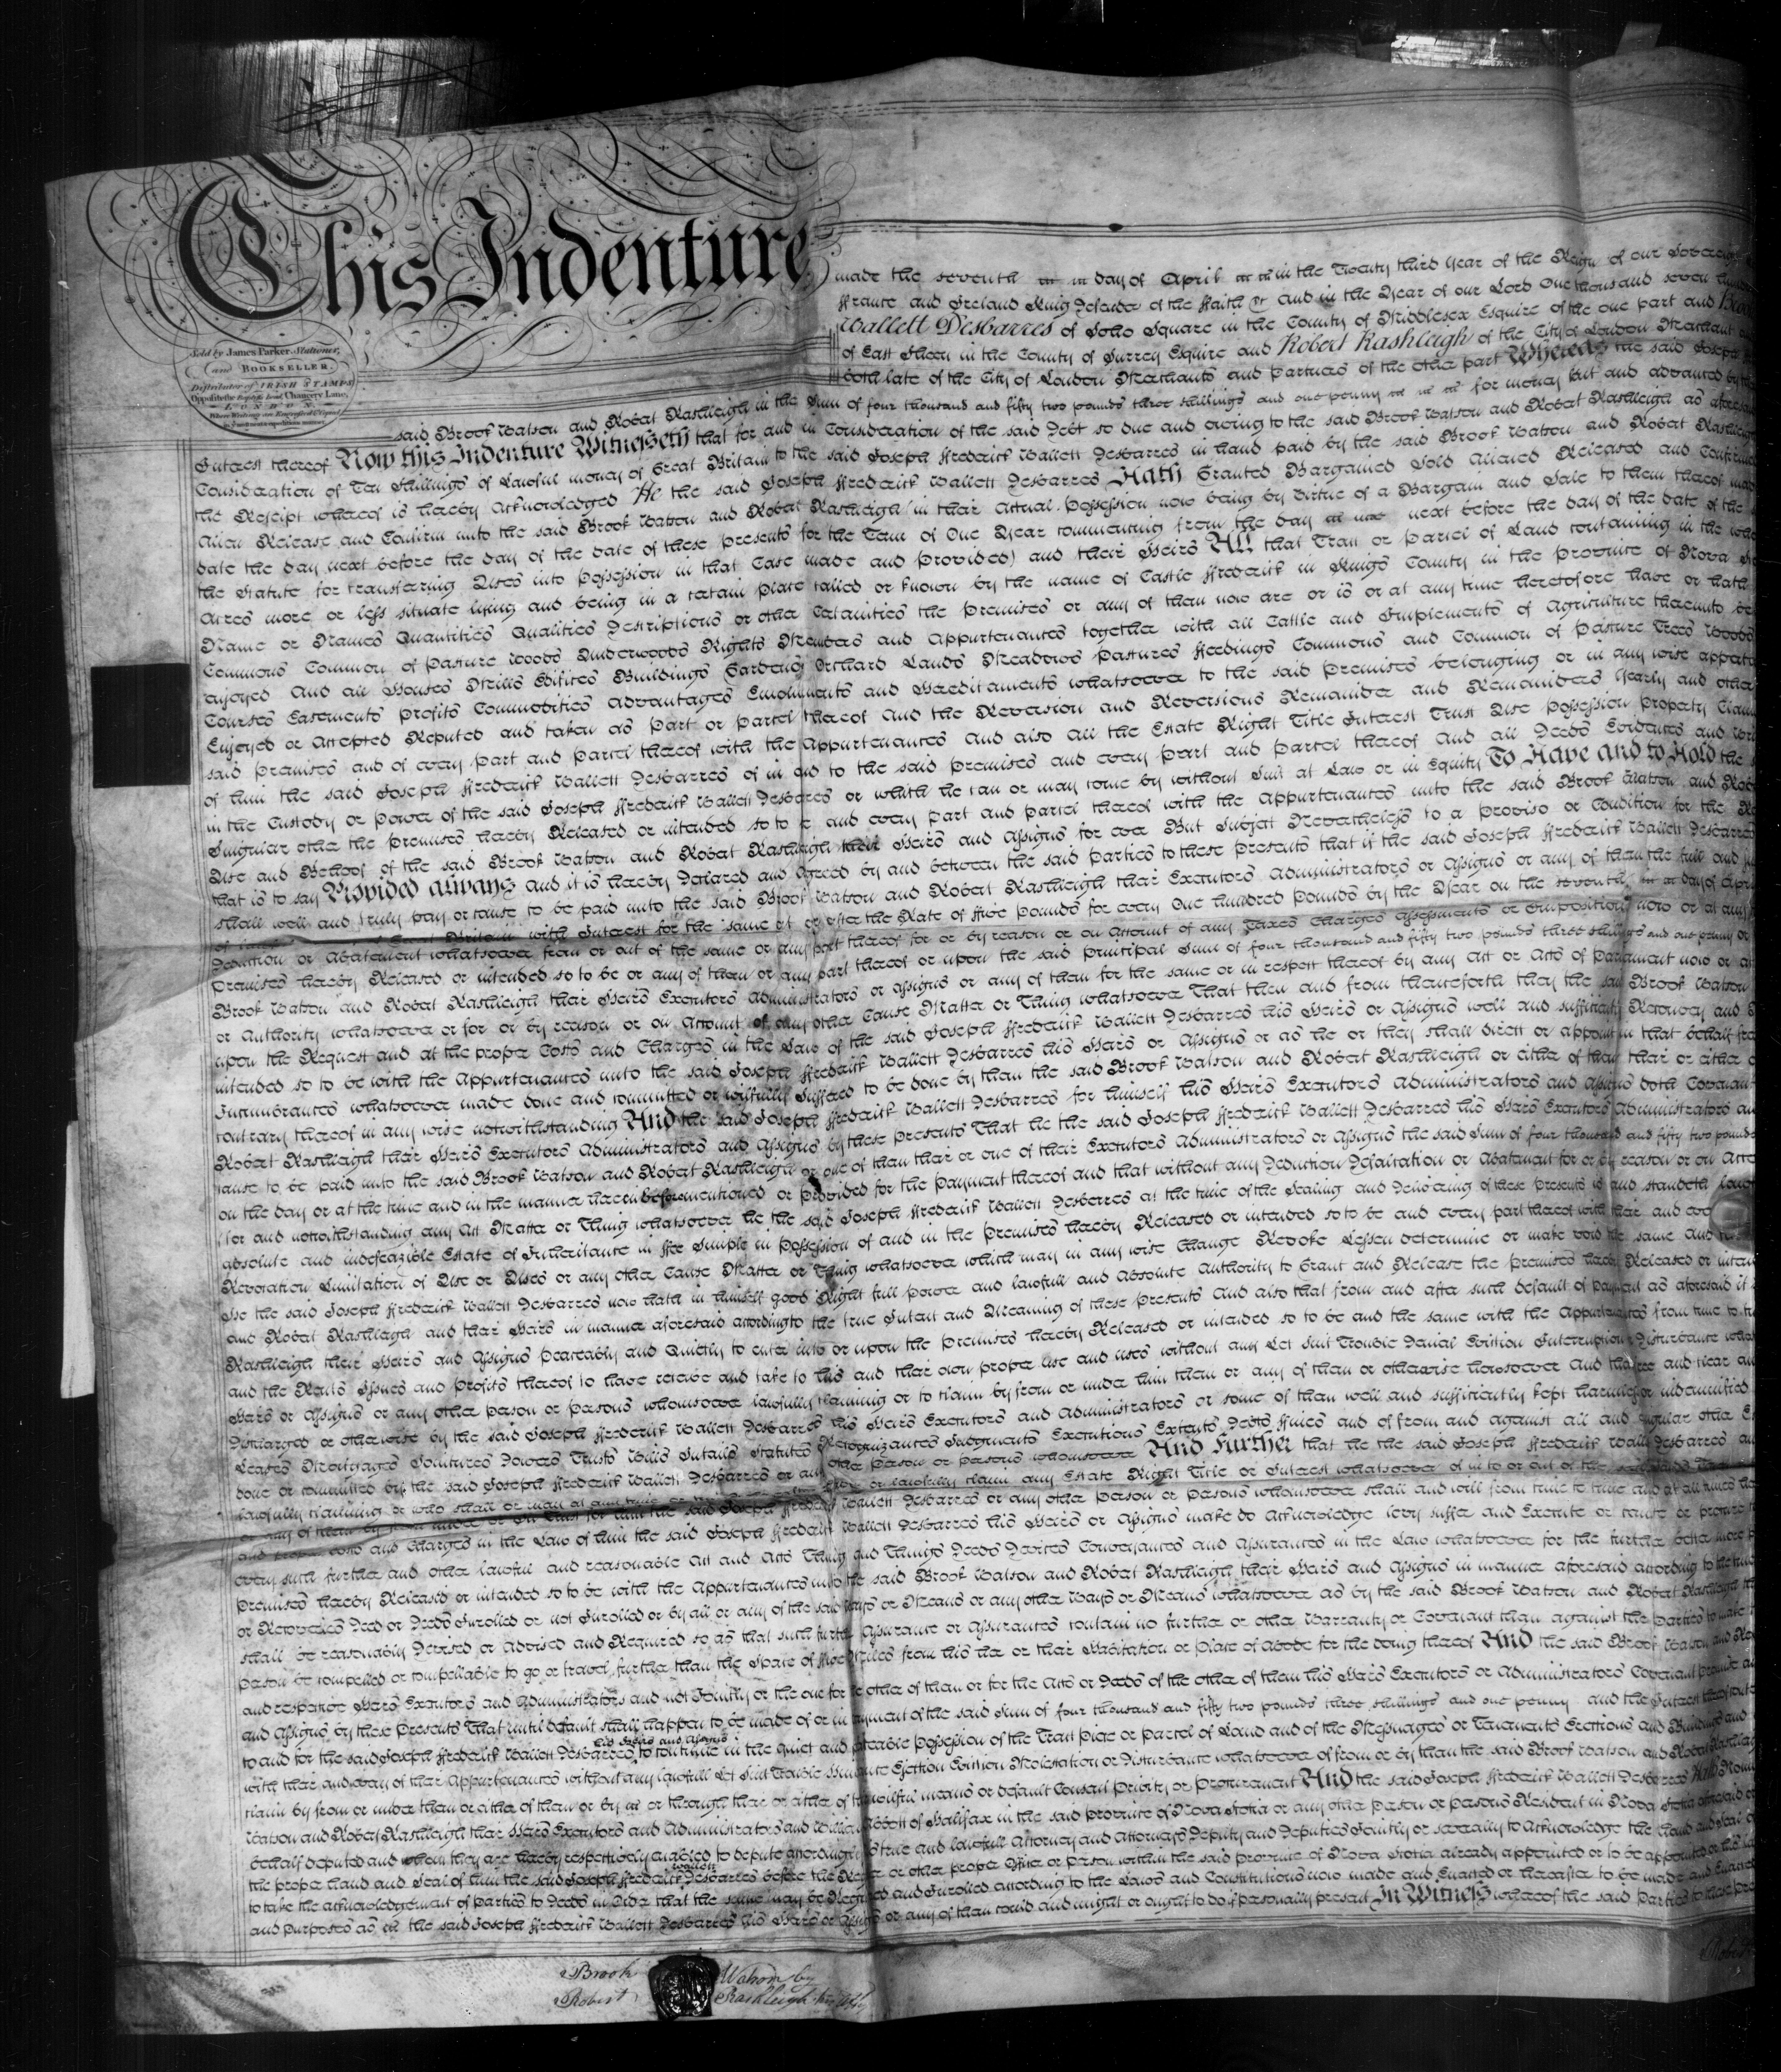 This Indenture
made the seventh day of April in the Twenty third Year of the Reign of our Sovereign
France and Ireland King Defender of the Faith &c And in the Year of our Lord One thousand seven hundred
Wallett Desbarres of Soho Square in the County of Middlesex Esquire of the one part and Brook
of East Sheen in the County of Surrey Esquire and Robert Rashleigh of the City of London Merchant
both late of the City of London Merchants and Partners of the other part Whereas the said Joseph
Sold by James Parker, Stationer,
and BOOKSELLER.
Distributor of IRISH STAMPS
Opposite the Chancery Lane,
LONDON.
said Brook Watson and Robert Rashleigh in the Sum of four thousand and fifty two pounds three shillings and one penny for money lent and advanced by
Interest thereof Now this Indenture Witnesseth that for and in Consideration of the said Debt so due and owing to the said Brook Watson and Robert Rashleigh as aforesaid
Consideration of Ten Shillings of Lawful money of Great Britain to the said Joseph Frederick Wallett Desbarres in hand paid by the said Brook Watson and Robert Rashleigh
the Receipt whereof is hereby Acknowledged He the said Joseph Frederick Wallett Desbarres Hath Granted Bargained Sold Aliened Released and Confirmed
Alien Release and Confirm unto the said Brook Watson and Robert Rashleigh (in their Actual Possession now being by Virtue of a Bargain and Sale to them thereof made
date the day next before the day of the date of these presents for the Term of One Year commencing from the day next before the day of the date of the
the Statute for transferring Uses into Possession in that Case made and Provided) and their Heirs All that Tract or Parcel of Land containing in the whole
Acres more or less situate lying and being in a certain place called or known by the name of Castle Frederick in Kings County in the Province of Nova
Name or Names Quantities Qualities Descriptions or other Certainties the Premises or any of them now are or is or at any time heretofore have or hath
Commons Common of Pasture Woods Underwoods Rights Members and Appurtenances together with all Cattle and Implements of Agriculture thereunto
enjoyed And all Houses Mills Edifices Buildings Gardens Orchard Lands Meadows Pastures Feedings Commons and Common of Pasture Trees Woods
Courses Easements Profits Commodities Advantages Emoluments and Hereditaments whatsoever to the said Premises belonging or in any wise
Enjoyed or Accepted Reputed and taken as Part or Parcel thereof And the Reversion and Reversions Remainder and Remainders Yearly and other
said Premises and of every Part and Parcel thereof with the Appurtenances And also all the Estate Right Title Interest Trust Use Possession Property Claim
of him the said Joseph Frederick Wallett Desbarres of in and to the said Premises and every Part and Parcel thereof And all Deeds Evidences and
in the Custody or Power of the said Joseph Frederick Wallett Desbarres or which he can or may come by without Suit at Law or in Equity To Have and to Hold the
Singular other the Premises hereby Released or intended so to be and every part and parcel thereof with the Appurtenances unto the said Brook Watson and
Use and Behoof of the said Brook Watson and Robert Rashleigh their Heirs and Assigns for ever But Subject Nevertheless to a Proviso or Condition for the
that is to say Provided always and it is hereby Declared and Agreed by and between the said Parties to these Presents that if the said Joseph Frederick Wallett Desbarres
shall well and truly pay or cause to be paid unto the said Brook Watson and Robert Rashleigh their Executors Administrators or Assigns or any of them the full and
Britain with Interest for the same at or after the Rate of Five Pounds for every One hundred Pounds by the Year on the seventh day of April
Deduction or Abatement whatsoever from or out of the same or any part thereof for or by reason or on Account of any Taxes Charges Assessments or Impositions now or at any
Premises hereby Released or intended so to be or any of them or any part thereof or upon the said principal Sum of four thousand and fifty two pounds three shillings and one penny or
Brook Watson and Robert Rashleigh their Heirs Executors Administrators or Assigns or any of them for the same or in respect thereof by any Act or Acts of Parliament now or
or Authority whatsoever or for or by reason or on Account of any other Cause Matter or Thing whatsoever That then and from thenceforth they the said Brook Watson
upon the Request and at the proper Costs and Charges in the Law of the said Joseph Frederick Wallett Desbarres his Heirs or Assigns well and sufficiently Reconvey and
intended so to be with the Appurtenances unto the said Joseph Frederick Wallett Desbarres his Heirs or Assigns or as he or they shall direct or appoint in that behalf
Incumbrances whatsoever made done and committed or wilfully Suffered to be done by them the said Brook Watson and Robert Rashleigh or either of them their or either
contrary thereof in any wise notwithstanding And the said Joseph Frederick Wallett Desbarres for himself his Heirs Executors Administrators and Assigns doth Covenant
Robert Rashleigh their Heirs Executors Administrators and Assigns by these Presents That he the said Joseph Frederick Wallett Desbarres his Heirs Executors Administrators
cause to be paid unto the said Brook Watson and Robert Rashleigh or one of them their or one of their Executors Administrators or Assigns the said Sum of four thousand and fifty two pounds
on the day or at the time and in the manner herein before mentioned or provided for the Payment thereof and that without any Deduction Defalcation or Abatement for or by reason or on
for and notwithstanding any Act Matter or Thing whatsoever he the said Joseph Frederick Wallett Desbarres at the time of the Sealing and Delivering of these Presents is and standeth
absolute and indefeazible Estate of Inheritance in Fee Simple in Possession of and in the Premises hereby Released or intended so to be and every part thereof with their and
Revocation Limitation of Use or Uses or any other Cause Matter or Thing whatsoever which may in any wise Change Revoke Lessen determine or make void the same And
He the said Joseph Frederick Wallett Desbarres now hath in himself good Right full power and lawfull and Absolute Authority to Grant and Release the premises hereby Released or
and Robert Rashleigh and their Heirs in manner aforesaid according to the true Intent and Meaning of these Presents And also that from and after such default of Payment as aforesaid it
Rashleigh their Heirs and Assigns Peaceably and Quietly to enter into or upon the Premises hereby Released or intended so to be and the same with the Appurtenances from time to
and the Rents Issues and Profits thereof to have receive and take to his and their own proper use and uses without any Let Suit Trouble Denial Eviction Interruption Disturbance
Heirs or Assigns or any other Person or Persons whomsoever lawfully claiming or to claim by from or under him them or any of them or otherwise howsoever And that free and clear
Discharged or otherwise by the said Joseph Frederick Wallett Desbarres his Heirs Executors and Administrators or some of them well and sufficiently kept harmless or indemnified
Leases Mortgages Jointures Dowers Trusts Wills Intails Statutes Recognizances Judgments Executions Extents Debts Fines and of from and against all and singular other
done or committed by the said Joseph Frederick Wallett Desbarres or any other Person or Persons whomsoever And Further that he the said Joseph Frederick Wallett Desbarres
lawfully claiming or who shall or may at any time or lawfully claim any Estate Right Title or Interest whatsoever of in to or out of the
the said Joseph Frederick Wallett Desbarres or any other Person or Persons whomsoever shall and will from time to time and at all times
and proper costs and Charges in the Law of him the said Joseph Frederick Wallett Desbarres his Heirs or Assigns make do Acknowledge levy suffer and Execute or cause or procure
every such further and other lawful and reasonable Act and Acts Thing and Things Deeds Devices Conveyances and Assurances in the Law whatsoever for the further better more
premises hereby Released or intended so to be with the Appurtenances unto the said Brook Watson and Robert Rashleigh their Heirs and Assigns in manner aforesaid according to the
or Recoveries Deed or Deeds Inrolled or not Inrolled or by all or any of the said Ways or Means or any other Ways or Means whatsoever as by the said Brook Watson and Robert Rashleigh
shall be reasonably Devised or Advised and Required so as that such further Assurance or Assurances contain no further or other Warranty or Covenant than against the parties to make
person be compelled or compellable to go or travel further than the Space of Five Miles from his her or their Habitation or Place of Abode for the doing thereof And the said Brook Watson and
and respective Heirs Executors and Administrators and not Jointly or the one for the other of them or for the Acts or Deeds of the other of them his Heirs Executors or Administrators Covenant promise
and Assigns by these Presents That until default shall happen to be made of or in payment of the said Sum of four thousand and fifty two pounds three shillings and one penny and the Interest thereof
his Heirs and Assigns
to and for the said Joseph Frederick Wallett Desbarres to continue in the quiet and peaceable Possession of the Tract Piece or Parcel of Land and of the Messuages or Tenements Erections and Buildings and
with their and every of their Appurtenances without any lawfull Let Suit Trouble Ejection Eviction Molestation or Disturbance whatsoever of from or by them the said Brook Watson and Robert Rashleigh
claim by from or under them or either of them or by or through their or either of their means or default Consent Privity or Procurement And the said Joseph Frederick Wallett Desbarres Hath
Watson and Robert Rashleigh their Heirs Executors and Administrators and of Halifax in the said Province of Nova Scotia or any other Person or Persons Resident in Nova Scotia aforesaid
behalf deputed and whom they are hereby respectively enabled to depute accordingly his true and lawfull Attorney and Attorneys Deputy and Deputies Jointly or severally to Acknowledge the
Wallett
the proper hand and Seal of him the said Joseph Frederick Desbarres before the or other proper Officer or Person within the said Province of Nova Scotia already appointed or to be appointed
to take the acknowledgement of Parties to Deeds in Order that the same may be and Inrolled according to the Laws and Constitutions now made and Enacted or hereafter to be made and Enacted
and purposes as the said Joseph Frederick Wallett Desbarres his Heirs or Assigns or any of them could and might or ought to do if personally present In Witness whereof the said Parties to these
Brook Watson by
Robert Rashleigh